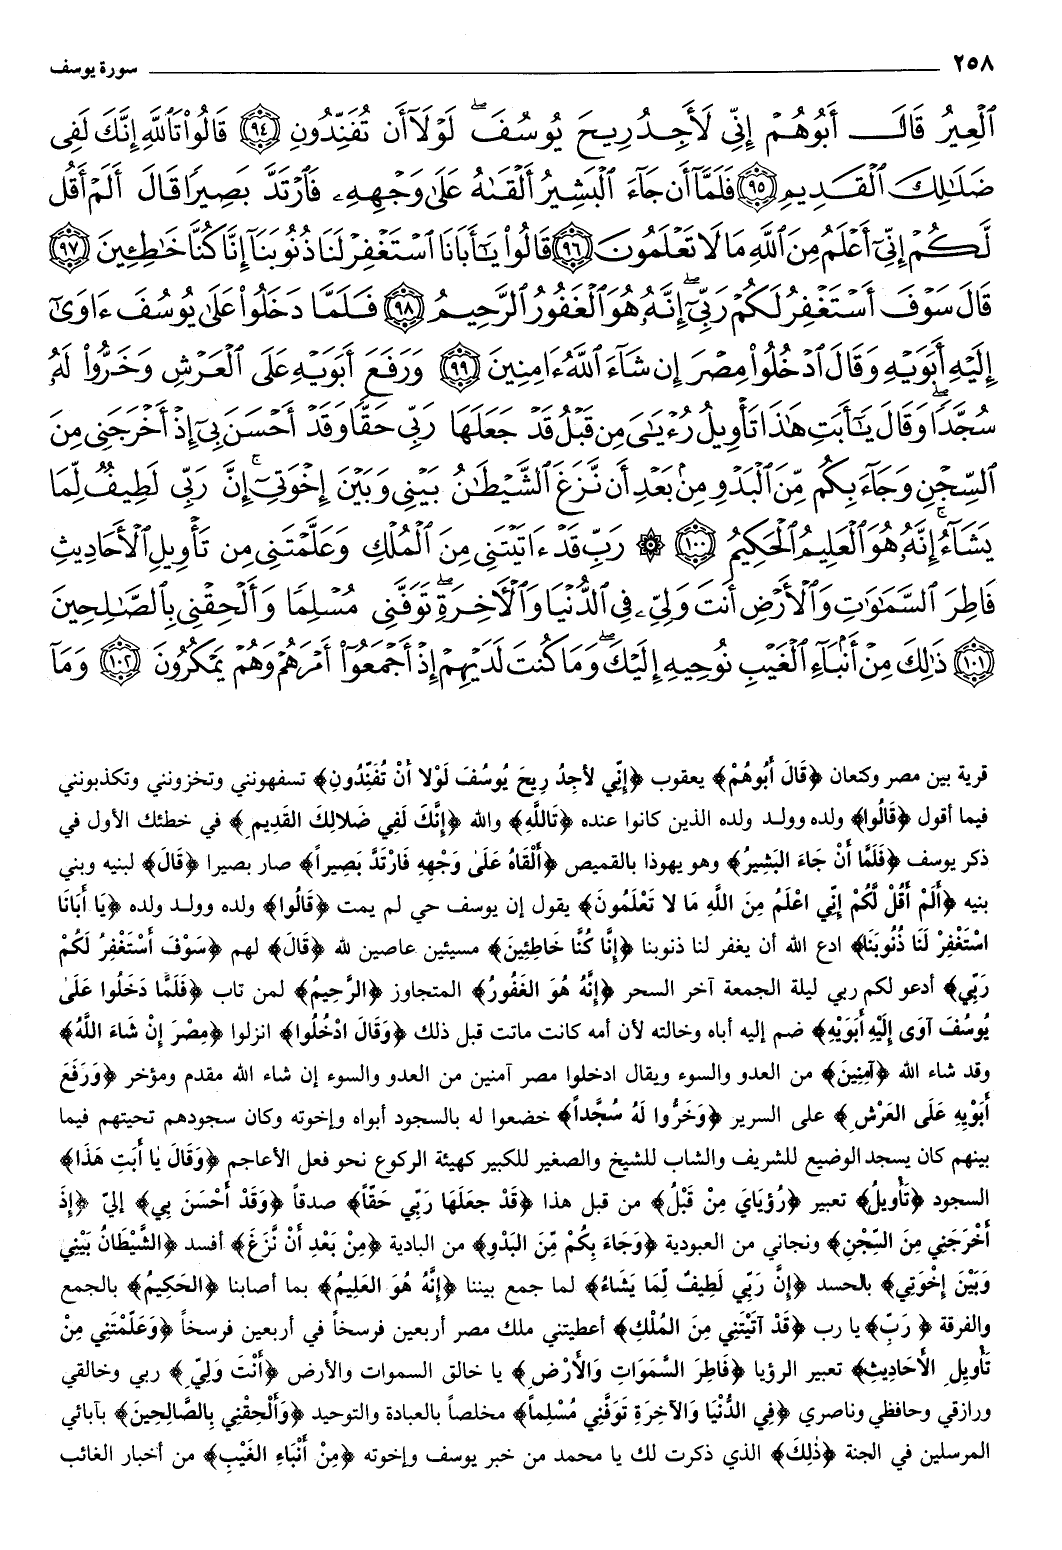 ٢٥٨ سورة يوسف
ٱلْعِيرُ قَالَ أَبُوهُمْ إِنِّى لَأَجِدُ رِيحَ يُوسُفَ ۖ لَوْلَآ أَن تُفَنِّدُونِ ٩٤ قَالُوا۟ تَٱللَّهِ إِنَّكَ لَفِى
ضَلَٰلِكَ ٱلْقَدِيمِ ٩٥ فَلَمَّآ أَن جَآءَ ٱلْبَشِيرُ أَلْقَىٰهُ عَلَىٰ وَجْهِهِۦ فَٱرْتَدَّ بَصِيرًا قَالَ أَلَمْ أَقُل
لَّكُمْ إِنِّىٓ أَعْلَمُ مِنَ ٱللَّهِ مَا لَا تَعْلَمُونَ ٩٦ قَالُوا۟ يَٰٓأَبَانَا ٱسْتَغْفِرْ لَنَا ذُنُوبَنَآ إِنَّا كُنَّا خَٰطِـِٔينَ ٩٧
قَالَ سَوْفَ أَسْتَغْفِرُ لَكُمْ رَبِّىٓ ۖ إِنَّهُۥ هُوَ ٱلْغَفُورُ ٱلرَّحِيمُ ٩٨ فَلَمَّا دَخَلُوا۟ عَلَىٰ يُوسُفَ ءَاوَىٰٓ
إِلَيْهِ أَبَوَيْهِ وَقَالَ ٱدْخُلُوا۟ مِصْرَ إِن شَآءَ ٱللَّهُ ءَامِنِينَ ٩٩ وَرَفَعَ أَبَوَيْهِ عَلَى ٱلْعَرْشِ وَخَرُّوا۟ لَهُۥ
سُجَّدًا ۖ وَقَالَ يَٰٓأَبَتِ هَٰذَا تَأْوِيلُ رُءْيَٰىَ مِن قَبْلُ قَدْ جَعَلَهَا رَبِّى حَقًّا وَقَدْ أَحْسَنَ بِىٓ إِذْ أَخْرَجَنِى مِنَ
ٱلسِّجْنِ وَجَآءَ بِكُم مِّنَ ٱلْبَدْوِ مِنۢ بَعْدِ أَن نَّزَغَ ٱلشَّيْطَٰنُ بَيْنِى وَبَيْنَ إِخْوَتِىٓ ۚ إِنَّ رَبِّى لَطِيفٌ لِّمَا
يَشَآءُ ۚ إِنَّهُۥ هُوَ ٱلْعَلِيمُ ٱلْحَكِيمُ ١٠٠ ۞ رَبِّ قَدْ ءَاتَيْتَنِى مِنَ ٱلْمُلْكِ وَعَلَّمْتَنِى مِن تَأْوِيلِ ٱلْأَحَادِيثِ
فَاطِرَ ٱلسَّمَٰوَٰتِ وَٱلْأَرْضِ أَنتَ وَلِىِّۦ فِى ٱلدُّنْيَا وَٱلْءَاخِرَةِ ۖ تَوَفَّنِى مُسْلِمًا وَأَلْحِقْنِى بِٱلصَّٰلِحِينَ
١٠١ ذَٰلِكَ مِنْ أَنۢبَآءِ ٱلْغَيْبِ نُوحِيهِ إِلَيْكَ ۖ وَمَا كُنتَ لَدَيْهِمْ إِذْ أَجْمَعُوٓا۟ أَمْرَهُمْ وَهُمْ يَمْكُرُونَ ١٠٢ وَمَآ
قرية بين مصر وكنعان ﴿قَالَ أَبُوهُمْ﴾ يعقوب ﴿إِنِّي لأَجِدُ رِيحَ يُوسُفَ لَوْلا أَنْ تُفَنِّدُونِ﴾ تسفهونني وتخزونني وتكذبونني
فيما أقول ﴿قَالُوا﴾ ولده وولد ولده الذين كانوا عنده ﴿تَاللَّهِ﴾ والله ﴿إِنَّكَ لَفِي ضَلالِكَ القَدِيمِ﴾ في خطئك الأول في
ذكر يوسف ﴿فَلَمَّا أَنْ جَاءَ البَشِيرُ﴾ وهو يهوذا بالقميص ﴿أَلْقَاهُ عَلَىٰ وَجْهِهِ فَارْتَدَّ بَصِيراً﴾ صار بصيرا ﴿قَالَ﴾ لبنيه وبني
بنيه ﴿أَلَمْ أَقُلْ لَّكُمْ إِنِّي اعْلَمُ مِنَ اللَّهِ مَا لا تَعْلَمُونَ﴾ يقول إن يوسف حي لم يمت ﴿قَالُوا﴾ ولده وولد ولده ﴿يَا أَبَانَا
اسْتَغْفِرْ لَنَا ذُنُوبَنَا﴾ ادع الله أن يغفر لنا ذنوبنا ﴿إِنَّا كُنَّا خَاطِئِينَ﴾ مسيئين عاصين لله ﴿قَالَ﴾ لهم ﴿سَوْفَ أَسْتَغْفِرُ لَكُمْ
رَبِّي﴾ أدعو لكم ربي ليلة الجمعة آخر السحر ﴿إِنَّهُ هُوَ الغَفُورُ﴾ المتجاوز ﴿الرَّحِيمُ﴾ لمن تاب ﴿فَلَمَّا دَخَلُوا عَلَىٰ
يُوسُفَ آوَى إِلَيْهِ أَبَوَيْهِ﴾ ضم إليه أباه وخالته لأن أمه كانت ماتت قبل ذلك ﴿وَقَالَ ادْخُلُوا﴾ انزلوا ﴿مِصْرَ إِنْ شَاءَ اللَّهُ﴾
وقد شاء الله ﴿آمِنِينَ﴾ من العدو والسوء ويقال ادخلوا مصر آمنين من العدو والسوء إن شاء الله مقدم ومؤخر ﴿وَرَفَعَ
أَبَوَيْهِ عَلَى العَرْشِ﴾ على السرير ﴿وَخَرُّوا لَهُ سُجَّداً﴾ خضعوا له بالسجود أبواه وإخوته وكان سجودهم تحيتهم فيما
بينهم كان يسجد الوضيع للشريف والشاب للشيخ والصغير للكبير كهيئة الركوع نحو فعل الأعاجم ﴿وَقَالَ يَا أَبَتِ هَذَا﴾
السجود ﴿تَأْوِيلُ﴾ تعبير ﴿رُؤْيَايَ مِنْ قَبْلُ﴾ من قبل هذا ﴿قَدْ جَعَلَهَا رَبِّي حَقّاً﴾ صدقاً ﴿وَقَدْ أَحْسَنَ بِي﴾ إليّ ﴿إِذْ
أَخْرَجَنِي مِنَ السِّجْنِ﴾ ونجاني من العبودية ﴿وَجَاءَ بِكُمْ مِّنَ البَدْوِ﴾ من البادية ﴿مِنْ بَعْدِ أَنْ نَّزَغَ﴾ أفسد ﴿الشَّيْطَانُ بَيْنِي
وَبَيْنَ إِخْوَتِي﴾ بالحسد ﴿إِنَّ رَبِّي لَطِيفٌ لِّمَا يَشَاءُ﴾ لما جمع بيننا ﴿إِنَّهُ هُوَ العَلِيمُ﴾ بما أصابنا ﴿الحَكِيمُ﴾ بالجمع
والفرقة ﴿رَبِّ﴾ يا رب ﴿قَدْ آتَيْتَنِي مِنَ المُلْكِ﴾ أعطيتني ملك مصر أربعين فرسخاً في أربعين فرسخاً ﴿وَعَلَّمْتَنِي مِنْ
تَأْوِيلِ الأَحَادِيثِ﴾ تعبير الرؤيا ﴿فَاطِرَ السَّمَوَاتِ وَالأَرْضِ﴾ يا خالق السموات والأرض ﴿أَنْتَ وَلِيِّ﴾ ربي وخالقي
ورازقي وحافظي وناصري ﴿فِي الدُّنْيَا وَالآخِرَةِ تَوَفَّنِي مُسْلِماً﴾ مخلصاً بالعبادة والتوحيد ﴿وَأَلْحِقْنِي بِالصَّالِحِينَ﴾ بآبائي
المرسلين في الجنة ﴿ذَٰلِكَ﴾ الذي ذكرت لك يا محمد من خبر يوسف وإخوته ﴿مِنْ أَنْبَاءِ الغَيْبِ﴾ من أخبار الغائب